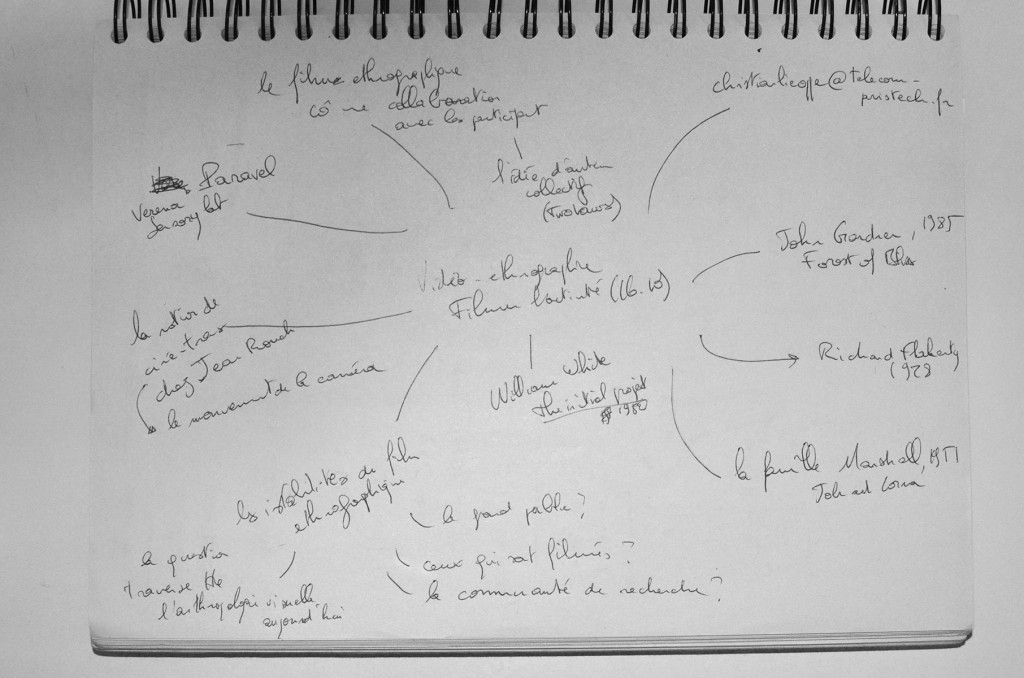 le filme ethnographique
cô une collaboration
avec les participant
l'idée d'auteur
collectif
christianlicoppe@telecom-
pristech.fr
Paravel
Verena
Sensory lab
John Gardner, 1985
Forest of Bliss
Vidéo-ethnographie
Filmer l'activité
la notion de
ciné-trans
chez Jean Rouch
le mouvement de la caméra
William White
the initial projet
1980
Richard Flaherty
(1928
la famille Marshall, 1957
Joh and Lorna
les
du film
ethnographique
le grand public ?
ceux qui sont filmés ?
la communauté de recherche ?
la question
traverse tte
l'anthropologie visuelle
aujourd'hui